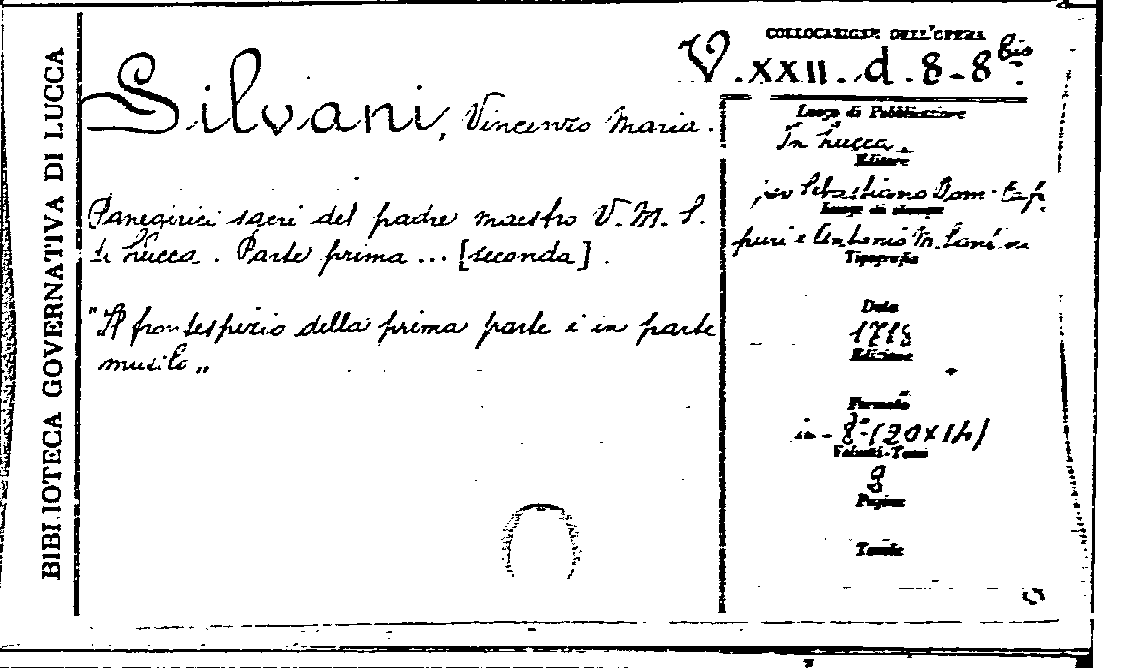 BIBLIOTECA GOVERNATIVA DI LUCCA
COLLOCAZIONE DELL'OPERA
V. XXII. d. 8-8 bis
Silvani, Vincenzo Maria.
Luogo di Pubblicazione
In Lucca
Editore
per Sebastiano Dom. Cap
Luogo di stampa
puri e Antonio M. Santini
Tipografia
Panegirici sacri del padre maestro V. M. S.
di Lucca. Parte prima ... [seconda].
"Il frontespizio della prima parte è in parte
mutilo"
Data
1718
Edizione
Formato
in-8° (20x14)
Volumi-Tomi
Pagine
Tavole